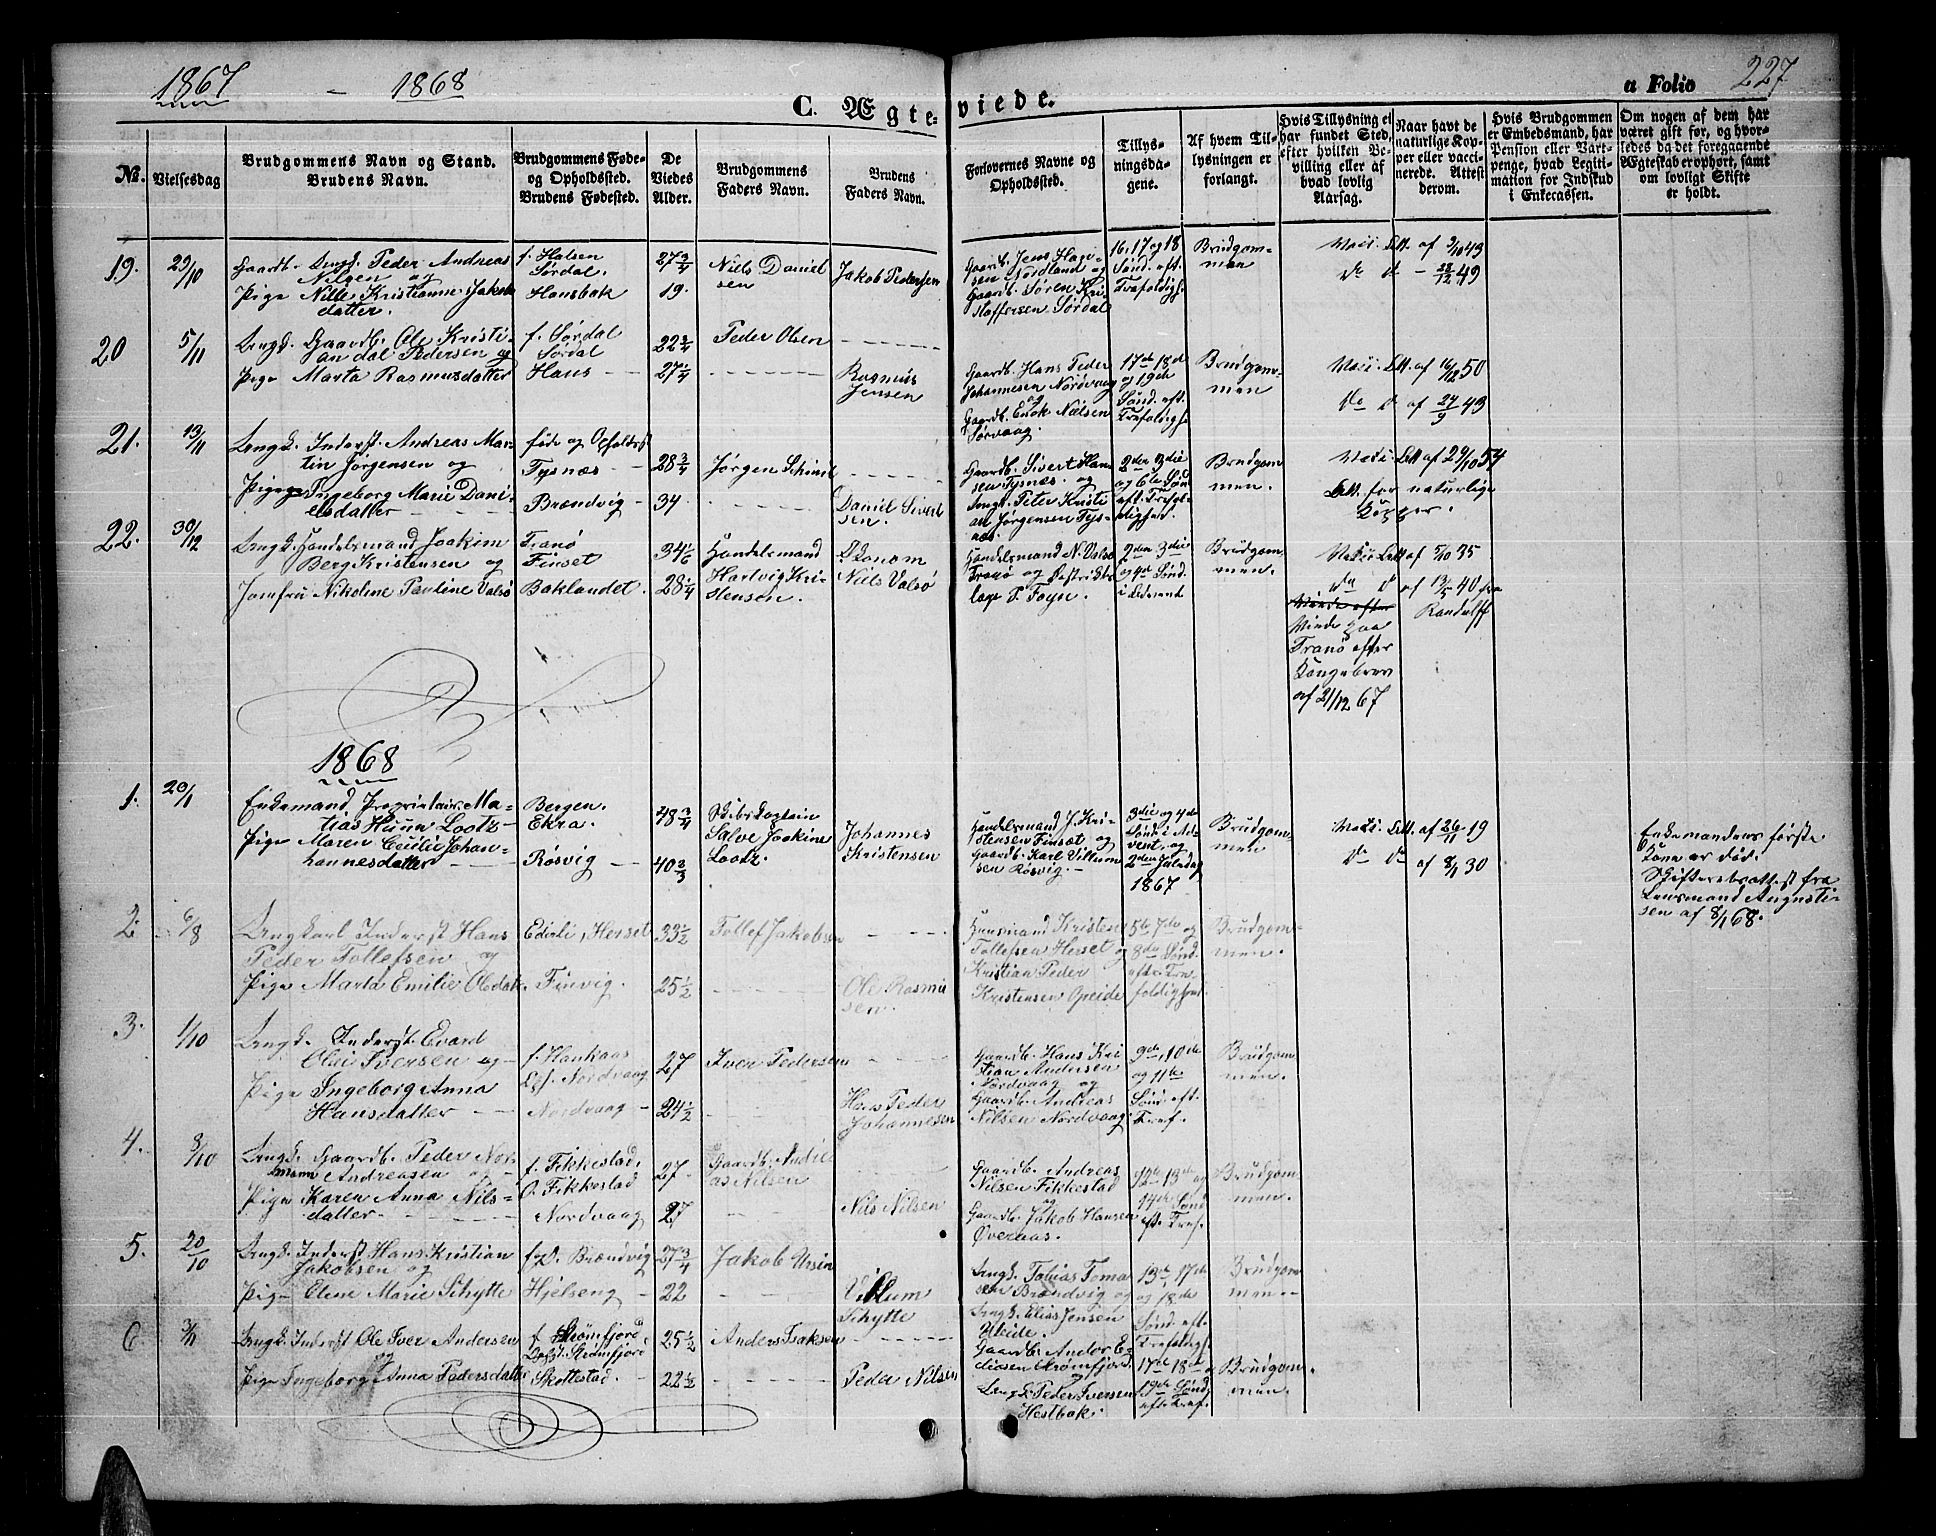 1867 - 1868
C. Ægteviede.
a Folio 227
No.
Vielsesdag
Brudgommens Navn og Stand.
Brudens Navn.
Brudgommens Føde-
og Opholdssted.
Brudens Fødested.
De
Viedes
Alder.
Brudgommens
Faders Navn.
Brudens
Faders Navn.
Forlovernes Navne og
Opholdssted.
Tillys-
ningsda-
gene.
Af hvem Til-
lysningen er
forlangt.
Hvis Tillysning ei
har fundet Sted,
efter hvilken Be-
villing eller af
hvad lovlig
Aarsag.
Naar havt de
naturlige Kop-
per eller vacci-
nerede. Attest
derom.
Hvis Brudgommen
er Embedsmand, har
Pension eller Vart-
penge, hvad Legiti-
mation for Indskud
i Enkecassen.
Om nogen af dem har
været gift før, og hvor-
ledes da det foregaaende
Ægteskab er ophørt, samt
om lovligt Skifte
er holdt.
19. 29/10
Gaardb. Ungk. Peder Andreas
Nilsen og
Pige Nille Kristianne Jakob
datter.
f. Halsen
Sørdal.
Hansbak
27 3/4
19.
Niels Daniel
sen
Jakob Pedersen
Gaardb. Jens Hagi-
sen Nordland og
Gaardb. Søren Kri
stoffersen Sørdal
16. 17 og 18
Sønd. eft.
Trefoldigh.
Brudgom-
men
Vaci. Att. af 9/10 43
do d - 28/12 49
20 5/11
Ungk. Gaardb. Ole Kristi-
an dal Pedersen og
Pige Marta Rasmusdatter
f. Sørdal
Sørdal
Hans
22 3/4
27 1/4
Peder Olsen
Rasmus
Jensen
Gaardb. Hans Peder
Johannesen Nordvaag
og
Gaardb. Enok Nielsen
Sørvaag.
17de 18de
og 19de
Sønd. eft.
Trefoldigh
Brudgom-
men
Vaci. Att. af 16/12 50
do d af 24/9 43
21. 13/11
Ungk. Inderst. Andreas Mar-
tin Jørgensen og
Pige Ingeborg Marie Dani-
elsdatter
føde og Opholdsst
Tysnæs
Brændvig
28 3/4
34
Jørgen Schind
Daniel Sivert
sen.
Gaardb. Sivert Han
sen Tysnæs. og
Ungk. Peter Kristi
an Jørgensen Tys-
næs.
2den 3die
og 6te Sønd
eft. Trefol-
dighed.
Brudgom-
men.
Vaci. Att af 29/10 54
Att. for naturlige
Kopper.
22. 30/12
Ungk. Handelsmand Joakim
Berg Kristensen og
Jomfru Nikoline Pauline Valsø
Tranø
Finset
Baklandet.
34 1/6
28 1/4
Handelsmand
Hartvig Kri-
stensen.
Økonom
Niels Valsø
Handelsmand N. Valsø
Tranø og Distrikts
læge T. Foyn.
2den 3die
og 4de Sønd
i Advent
Brudgom-
men.
Vaci Att af 5/10 35
do d af 13/5 40 fra
Randulff
Viede efter
Viede paa
Tranø efter
Kongebrev
af 21/12 67
1868
1. 20/1
Enkemand Proprietair Ma-
tias Huun Lootz
Pige Maren Cecilie Johan-
hannesdatter
Bergen.
Ekra.
Røsvig
48 3/4
40 2/3
Skibskaptein
Salve Joakim
Lootz.
Johannes
Kristensen
Handelsmand J. Kri-
stensen Finsæt og
Gaardb. Karl Villum
sen Røsvig.
3die og 4de
Sønd i Ad-
vent, og
2den Juledag
1867
Brudgom-
men
Vaci. Att. af 26/11 19
do do af 8/1 30
Enkemandens første
Kone er død.
Skifteretsattest fra
Lensmand Augusti-
sen af 8/1 68.
2. 6/8
Ungkarl Inderst Hans
Peder Tollefsen og
Pige Marta Emilie Oledatr.
Ederli, Herset
Finvig.
33 1/2
25 1/2
Tollef Jakobsen
Ole Rasmu
sen.
Huusmand Kristen
Tollefsen Herset og
Kristian Peder
Kristensen Opeide
5te 7de og
8de Sønd.
eft. Tre-
foldighed.
Brudgom-
men.
3. 1/10
Ungk. Inderst. Evard
Olai Iversen og
Pige Ingeborg Anna
Hansdatter
f. Hankaas
Opf. Nordvaag
Nordvaag
27
24 1/2
Iver Pedersen
Hans Peder
Johannesen
Gaardb. Hans Kri
stian Andersen
Nordvaag og
Gaardb. Andreas
Nilsen Nordvaag
9de, 10de
og 11te
Sønd. eft.
Tref.
Brudgom-
men.
4. 8/10
Ungk. Gaardb. Peder Nor
mann Andreasen og
Pige Karen Anna Nils-
datter.
f. Fikkestad,
O. Fikkestad
Nordvaag
27
27
Gaardb. Andre
as Nilsen
Nils Nilsen
Gaardb. Andreas
Nilsen Fikkestad
og
Gaardb. Jakob Hansen
Øvernæs.
12te 13de og
14de Sønd
eft. Tref.
Brudgom-
men.
5. 20/10
Ungk. Inderst Hans Kristian
Jakobsen og
Pige Elene Marie Schytte
f. O. Brændvig
Hjelseng
27 3/4
22
Jakob Ursin
Villum
Schytte
Ungk. Tobias Toma
sen Brændvig og
Ungk. Elias Jensen
Uleide.
13de, 17de
og 18de
Sønd. eft.
Trefoldigh.
Brudgom
men.
6. 3/11
Ungk. Inderst Ole Iver Andersen
og
Pige Ingeborg Anna Pedersdatter
f. Strømfjord
Opf. Strømfjord
Skottestad.
25 1/2
22 1/2
Anders Isaksen
Peder Nilsen
Gaardb. Andor E-
diasen Strømfjord
og
Ungk. Peder Iversen
Hestbak.
17de 18de og
19de Sønd
eft. Tref.
Brudgom-
men.